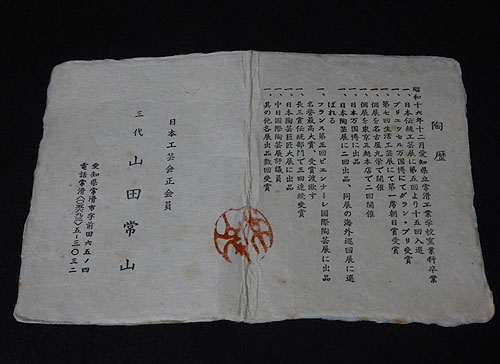 陶歴
昭和十六年十二月愛知県立常滑工業学校窯業科卒業
一、日本伝統工芸展に第五回より十五回入選
一、ブリュッセル万国博にてグラン・プリ受賞
一、第七回生活工芸展にて第一席朝日賞受賞
一、個展を名古屋丸栄で開催
一、個展を東京三越本店で二回開催
一、日本万国博に出品
一、日本陶芸展に二回出品、同展の海外巡回展に選
ばれる
一、フランス第三回ビエンナーレ国際陶芸展に出品
名誉最高大賞、受賞渡欧す
一、長三賞伝統部門で三回連続受賞
一、日本陶芸巨匠大展に出品
一、中日国際陶芸展評議員
一、其の他各展出品数回受賞
日本工芸会正会員
三代 山田常山
愛知県常滑市字前田六五ノ四
電話常滑(〇五六九)五-三〇三二